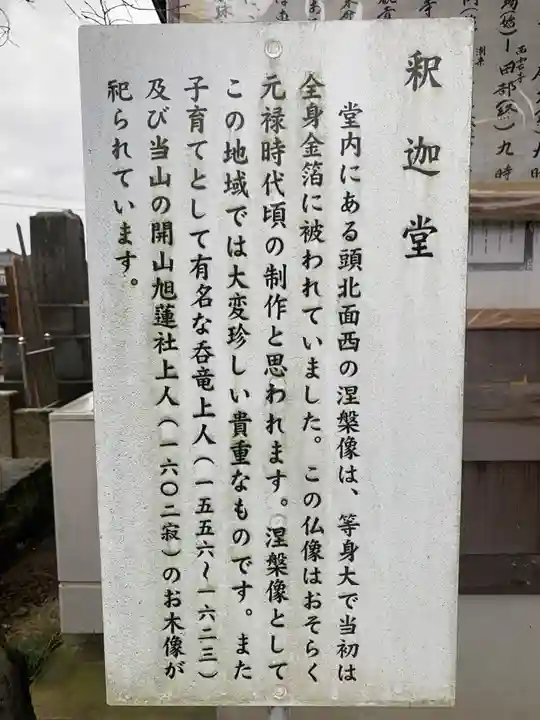 釈迦堂
堂内にある頭北面西の涅槃像は、等身大で当初は
全身金箔に被われていました。この仏像はおそらく
元禄時代頃の制作と思われます。涅槃像として
この地域では大変珍しい貴重なものです。また
子育てとして有名な呑竜上人(一五五六～一六二三)
及び当山の開山旭蓮社上人(一六〇二寂)のお木像が
祀られています。
田部(終)九時